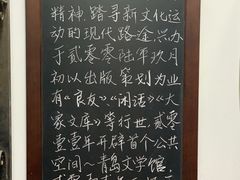 精神,踏寻新文化运
动的现代路途兴办
于贰零零陆年玖月
初以出版策划为业
有《良友》《闲话》《大
家文库》等行世,贰零
壹壹年开辟首个公共
空间~青岛文学馆